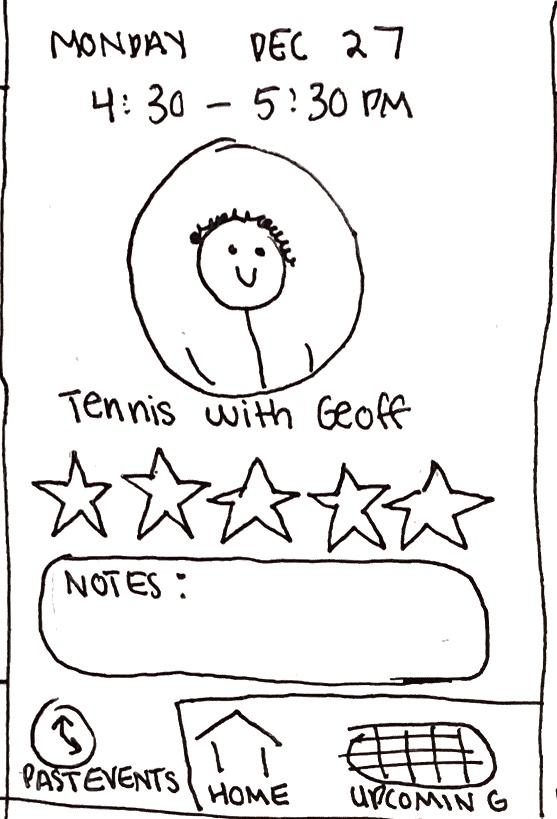 MONDAY DEC 27
4:30 - 5:30 PM
Tennis with Geoff
NOTES:
PAST EVENTS
HOME
UPCOMING